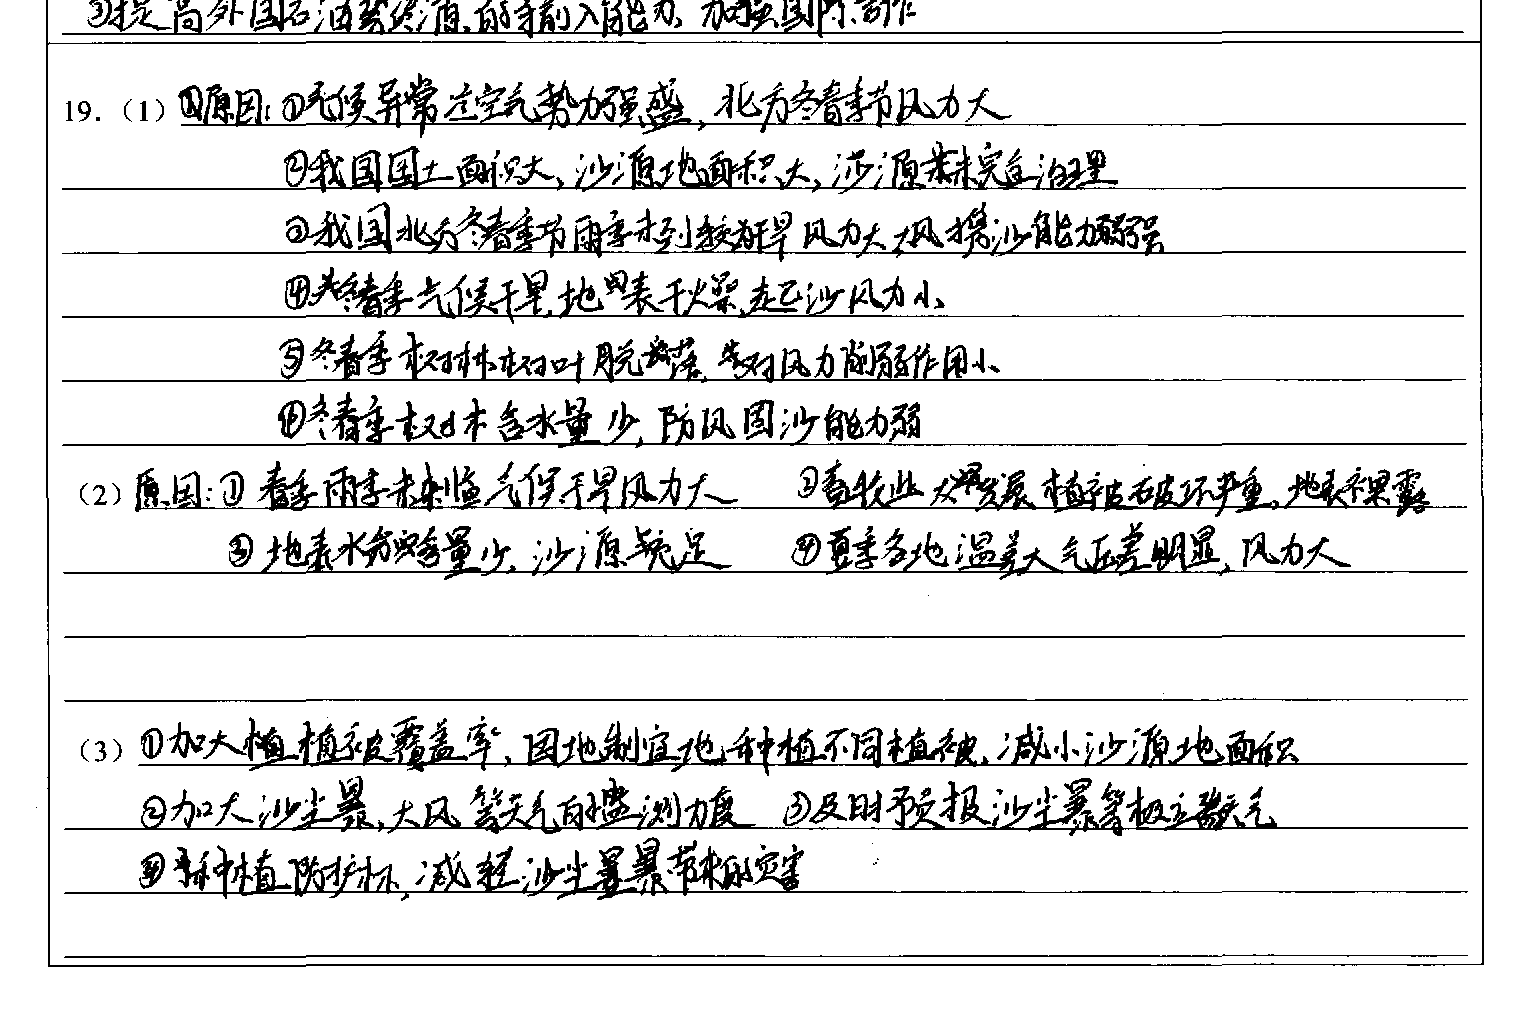 ③提高外国石油资源的输入能力,加强国际合作
19.(1)原因:①气候异常,空气势力强盛,北方冬春季节风力大
②我国国土面积大,沙源地面积大,沙源未完全治理
③我国北方冬春季节雨季未到较为干旱风力大,大风携沙能力强
④冬春季气候干旱,地表干燥,起沙风力小
⑤冬春季树林树叶脱落,对风力削弱作用小
⑥冬春季树木含水量少,防风固沙能力弱
(2)原因:①春季雨季未到临气候干旱风力大 ②畜牧业发展,植被破坏严重,地表裸露
③地表水分含量少,沙源充足 ④夏季各地温差大气压差明显,风力大
(3)①加大植被覆盖率,因地制宜地种植不同植被,减小沙源地面积
②加大沙尘暴,大风等天气的监测力度 ③及时预报沙尘暴等极端天气
④种植防护林,减轻沙尘暴带来的灾害